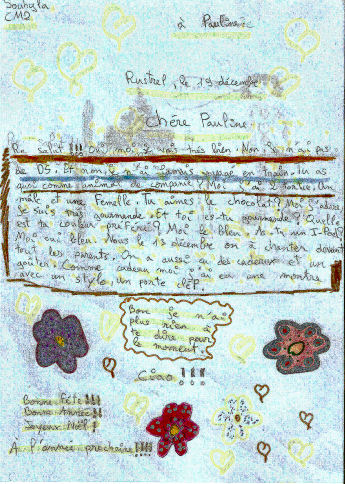 Souhyla
CM2
à Pauline
Rustrel, le 19 décembre
Chère Pauline
salut !!! Oui moi je vais très bien. Non je n'ai pas
de DS. Et non je n'ai jamais voyagé en train. Tu as
quoi comme animal de compagnie? Moi j'ai 2 Un
mâle et une femelle. Tu aimes le chocolat? Moi j'adore
je suis très gourmande. Et toi es-tu gourmande? Quelle
est ta couleur préférée? Moi le bleu. As-tu un I-Pod?
Moi oui bleu. Nous le 13 décembre on a chanter devant
tout les parents. On a aussi eu des cadeaux et un
goûter. Comme cadeau moi j'ai eu une montre
avec un style un porte clef.
Bon je n'ai
plus rien à
te dire pour
le moment.
Ciao !!!
Bonne fête !!!
Bonne Année !!
Joyeux Noël !
A l'année prochaine !!!!